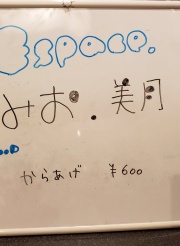 Espace.
みお.美月
からあげ ¥600